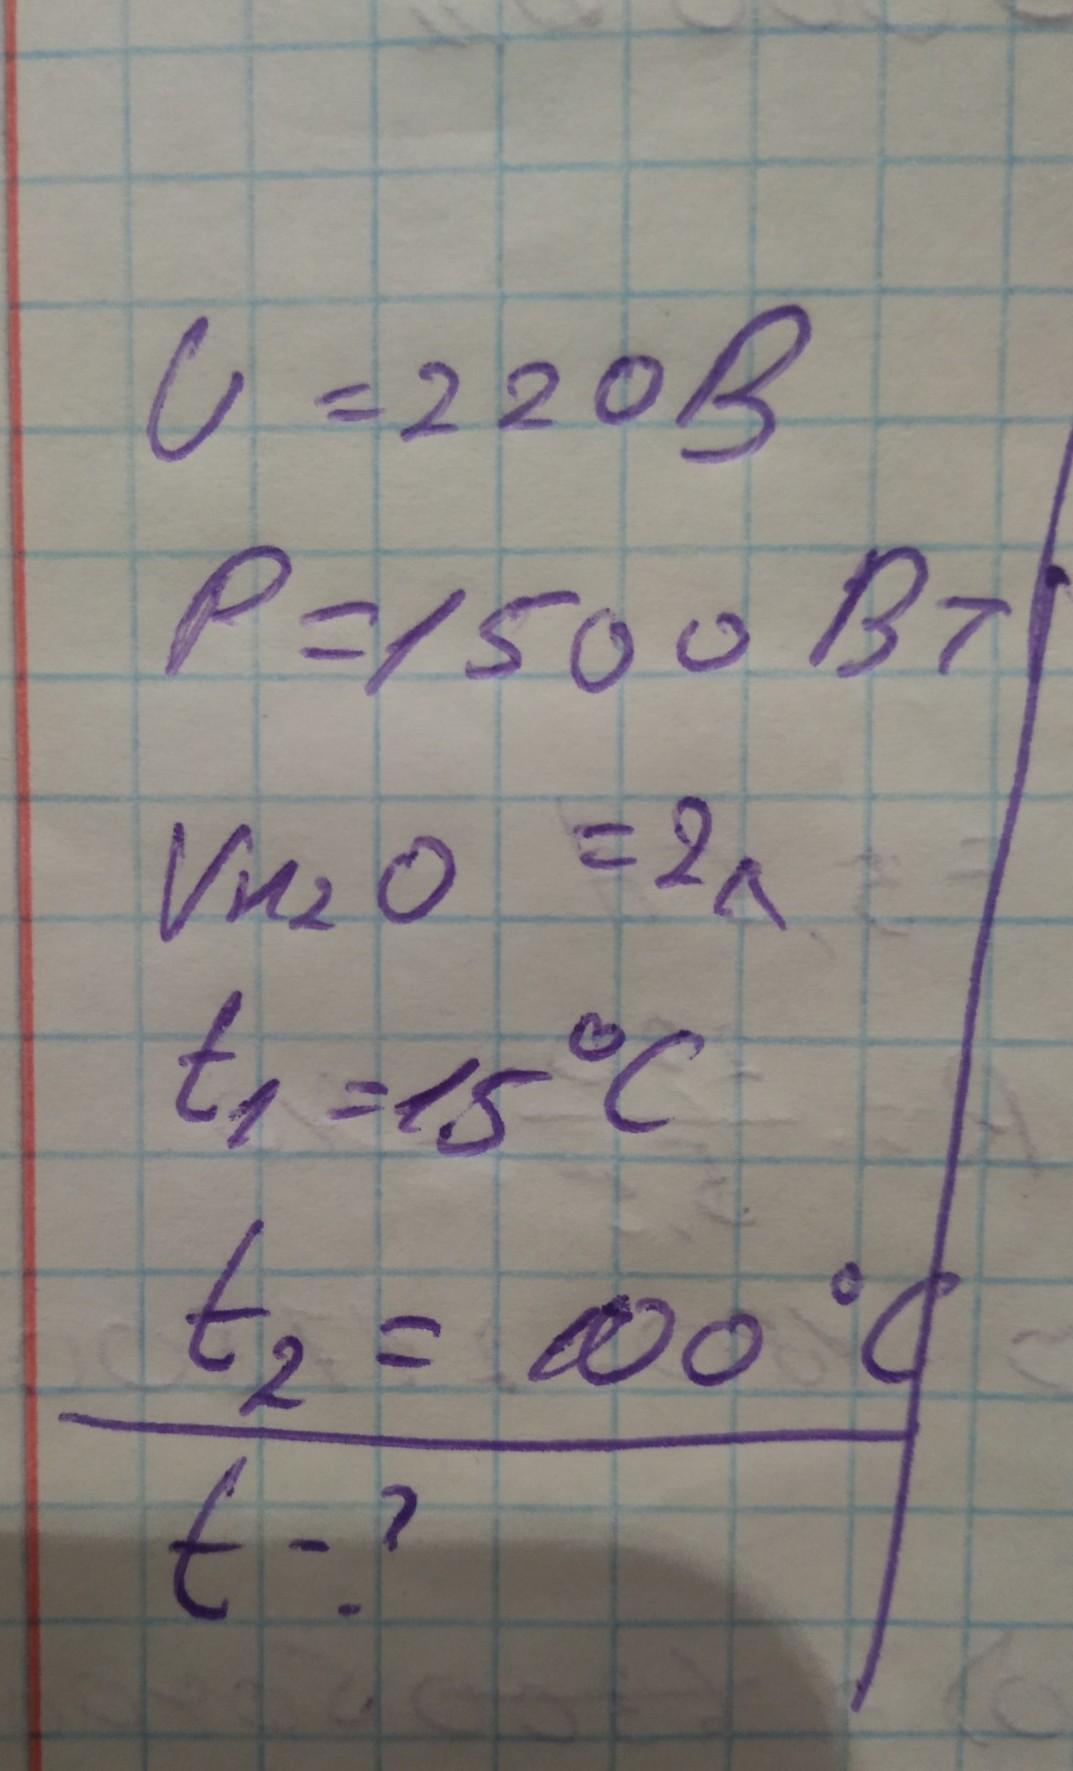 U = 220В
P = 1500 Вт
VH₂O = 2л
t₁ = 15°C
t₂ = 100°C
t - ?